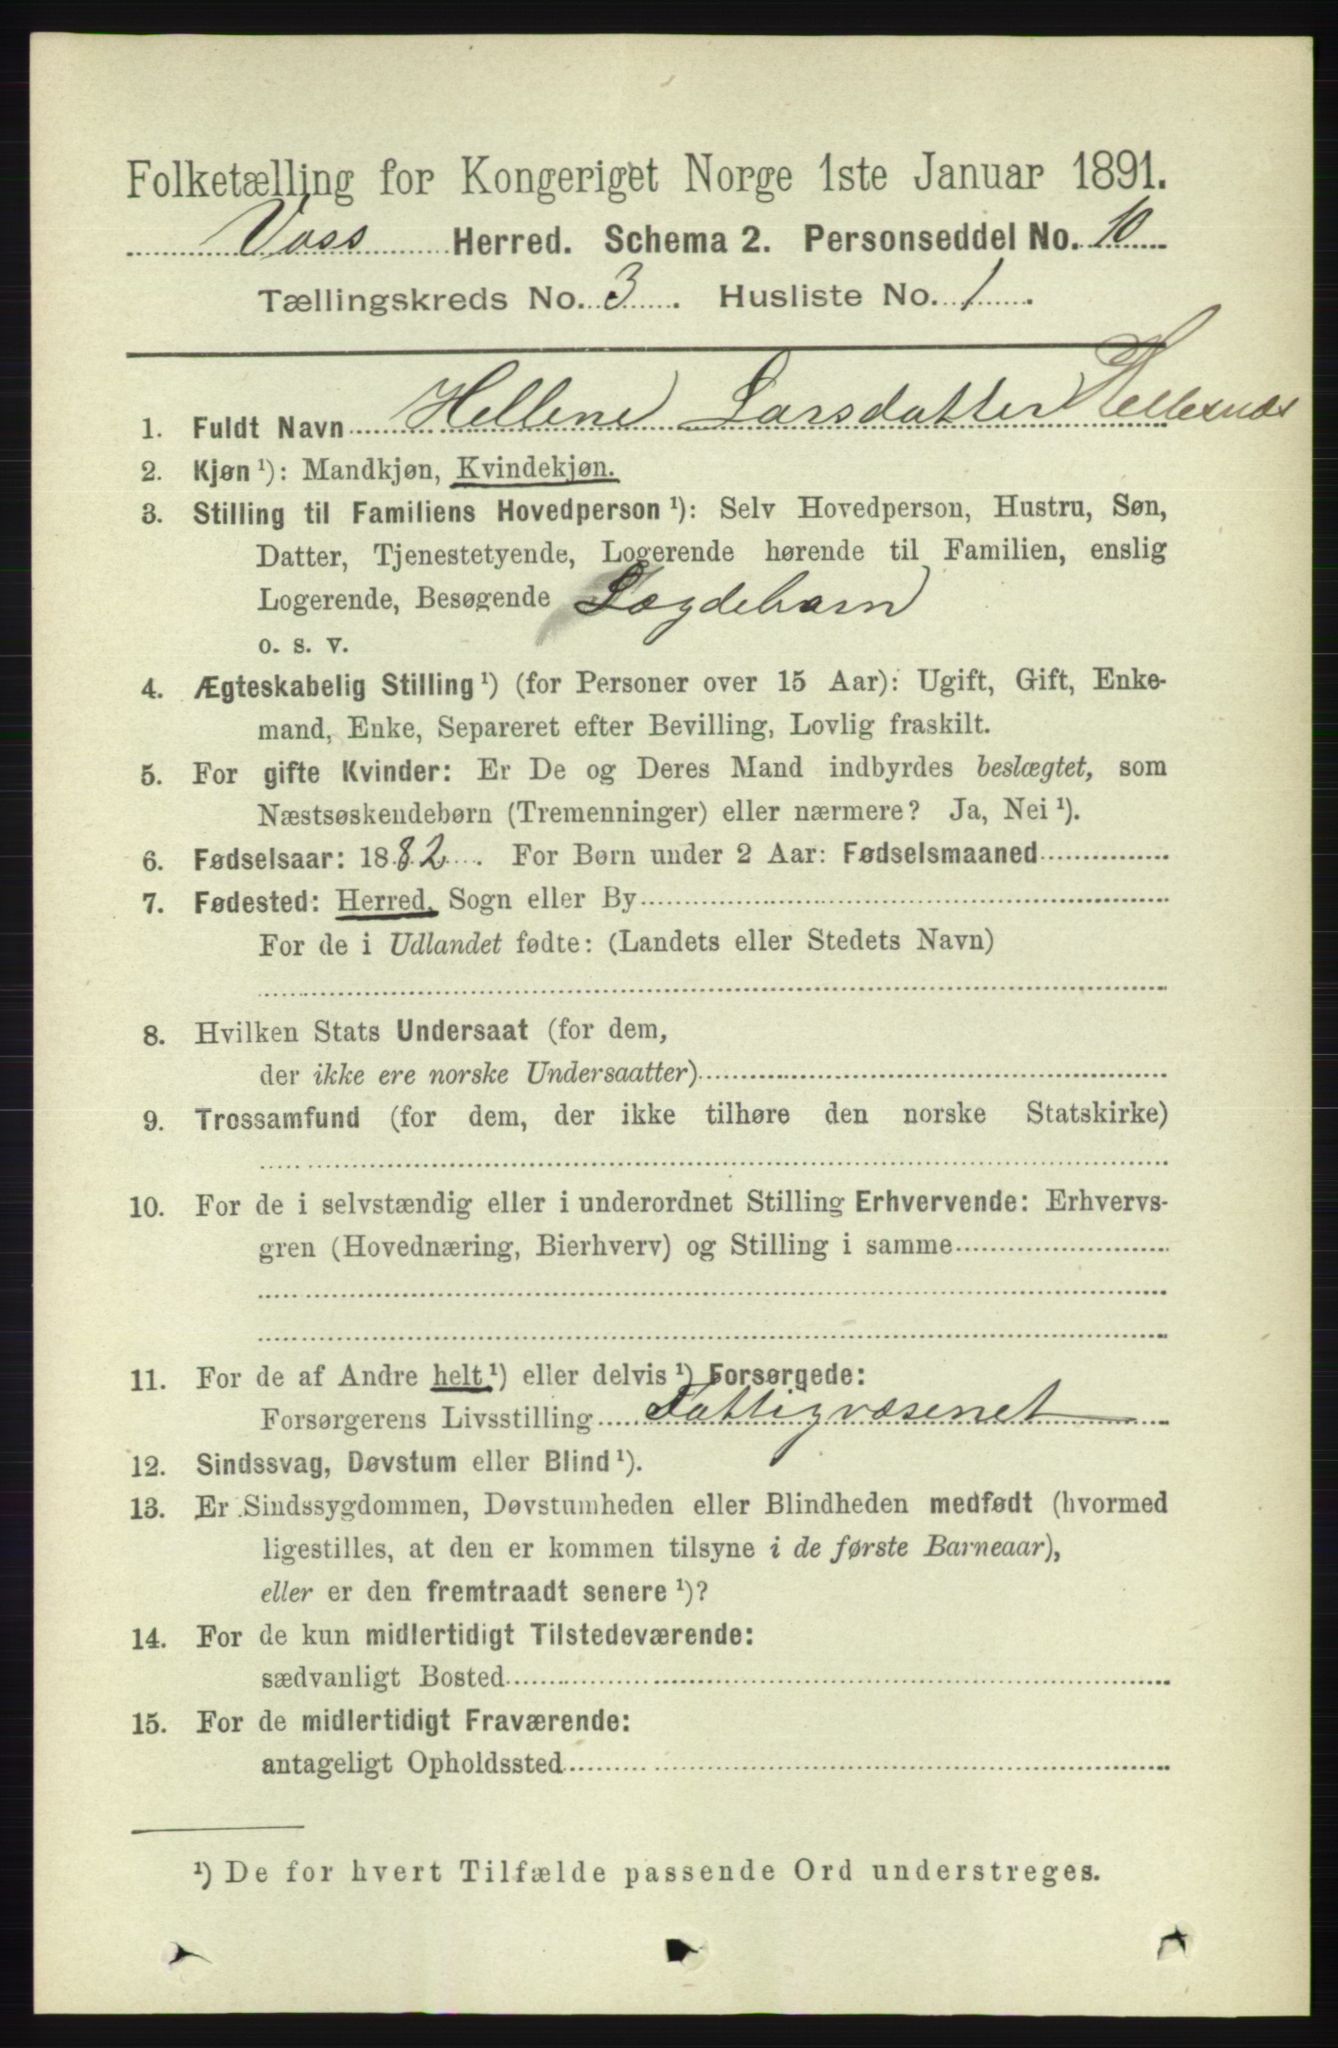 Folketælling for Kongeriget Norge 1ste Januar 1891.
Voss Herred. Schema 2. Personseddel No. 10
Tællingskreds No. 3. Husliste No. 1.
1. Fuldt Navn Hellene Larsdatter
2. Kjøn ¹): Mandkjøn, Kvindekjøn.
3. Stilling til Familiens Hovedperson ¹): Selv Hovedperson, Hustru, Søn,
Datter, Tjenestetyende, Logerende hørende til Familien, enslig
Logerende, Besøgende Lægdebarn
o. s. v.
4. Ægteskabelig Stilling ¹) (for Personer over 15 Aar): Ugift, Gift, Enke-
mand, Enke, Separeret efter Bevilling, Lovlig fraskilt.
5. For gifte Kvinder: Er De og Deres Mand indbyrdes beslægtet, som
Næstsøskendebørn (Tremenninger) eller nærmere? Ja, Nei ¹).
6. Fødselsaar: 1882. For Børn under 2 Aar: Fødselsmaaned
7. Fødested: Herred, Sogn eller By
For de i Udlandet fødte: (Landets eller Stedets Navn)
8. Hvilken Stats Undersaat (for dem,
der ikke ere norske Undersaatter)
9. Trossamfund (for dem, der ikke tilhøre den norske Statskirke)
10. For de i selvstændig eller i underordnet Stilling Erhvervende: Erhvervs-
gren (Hovednæring, Bierhverv) og Stilling i samme
11. For de af Andre helt ¹) eller delvis ¹) Forsørgede:
Forsørgerens Livsstilling Fattigvæsenet
12. Sindssvag, Døvstum eller Blind ¹).
13. Er Sindssygdommen, Døvstumheden eller Blindheden medfødt (hvormed
ligestilles, at den er kommen tilsyne i de første Barneaar),
eller er den fremtraadt senere ¹)?
14. For de kun midlertidigt Tilstedeværende:
sædvanligt Bosted
15. For de midlertidigt Fraværende:
antageligt Opholdssted
¹) De for hvert Tilfælde passende Ord understreges.